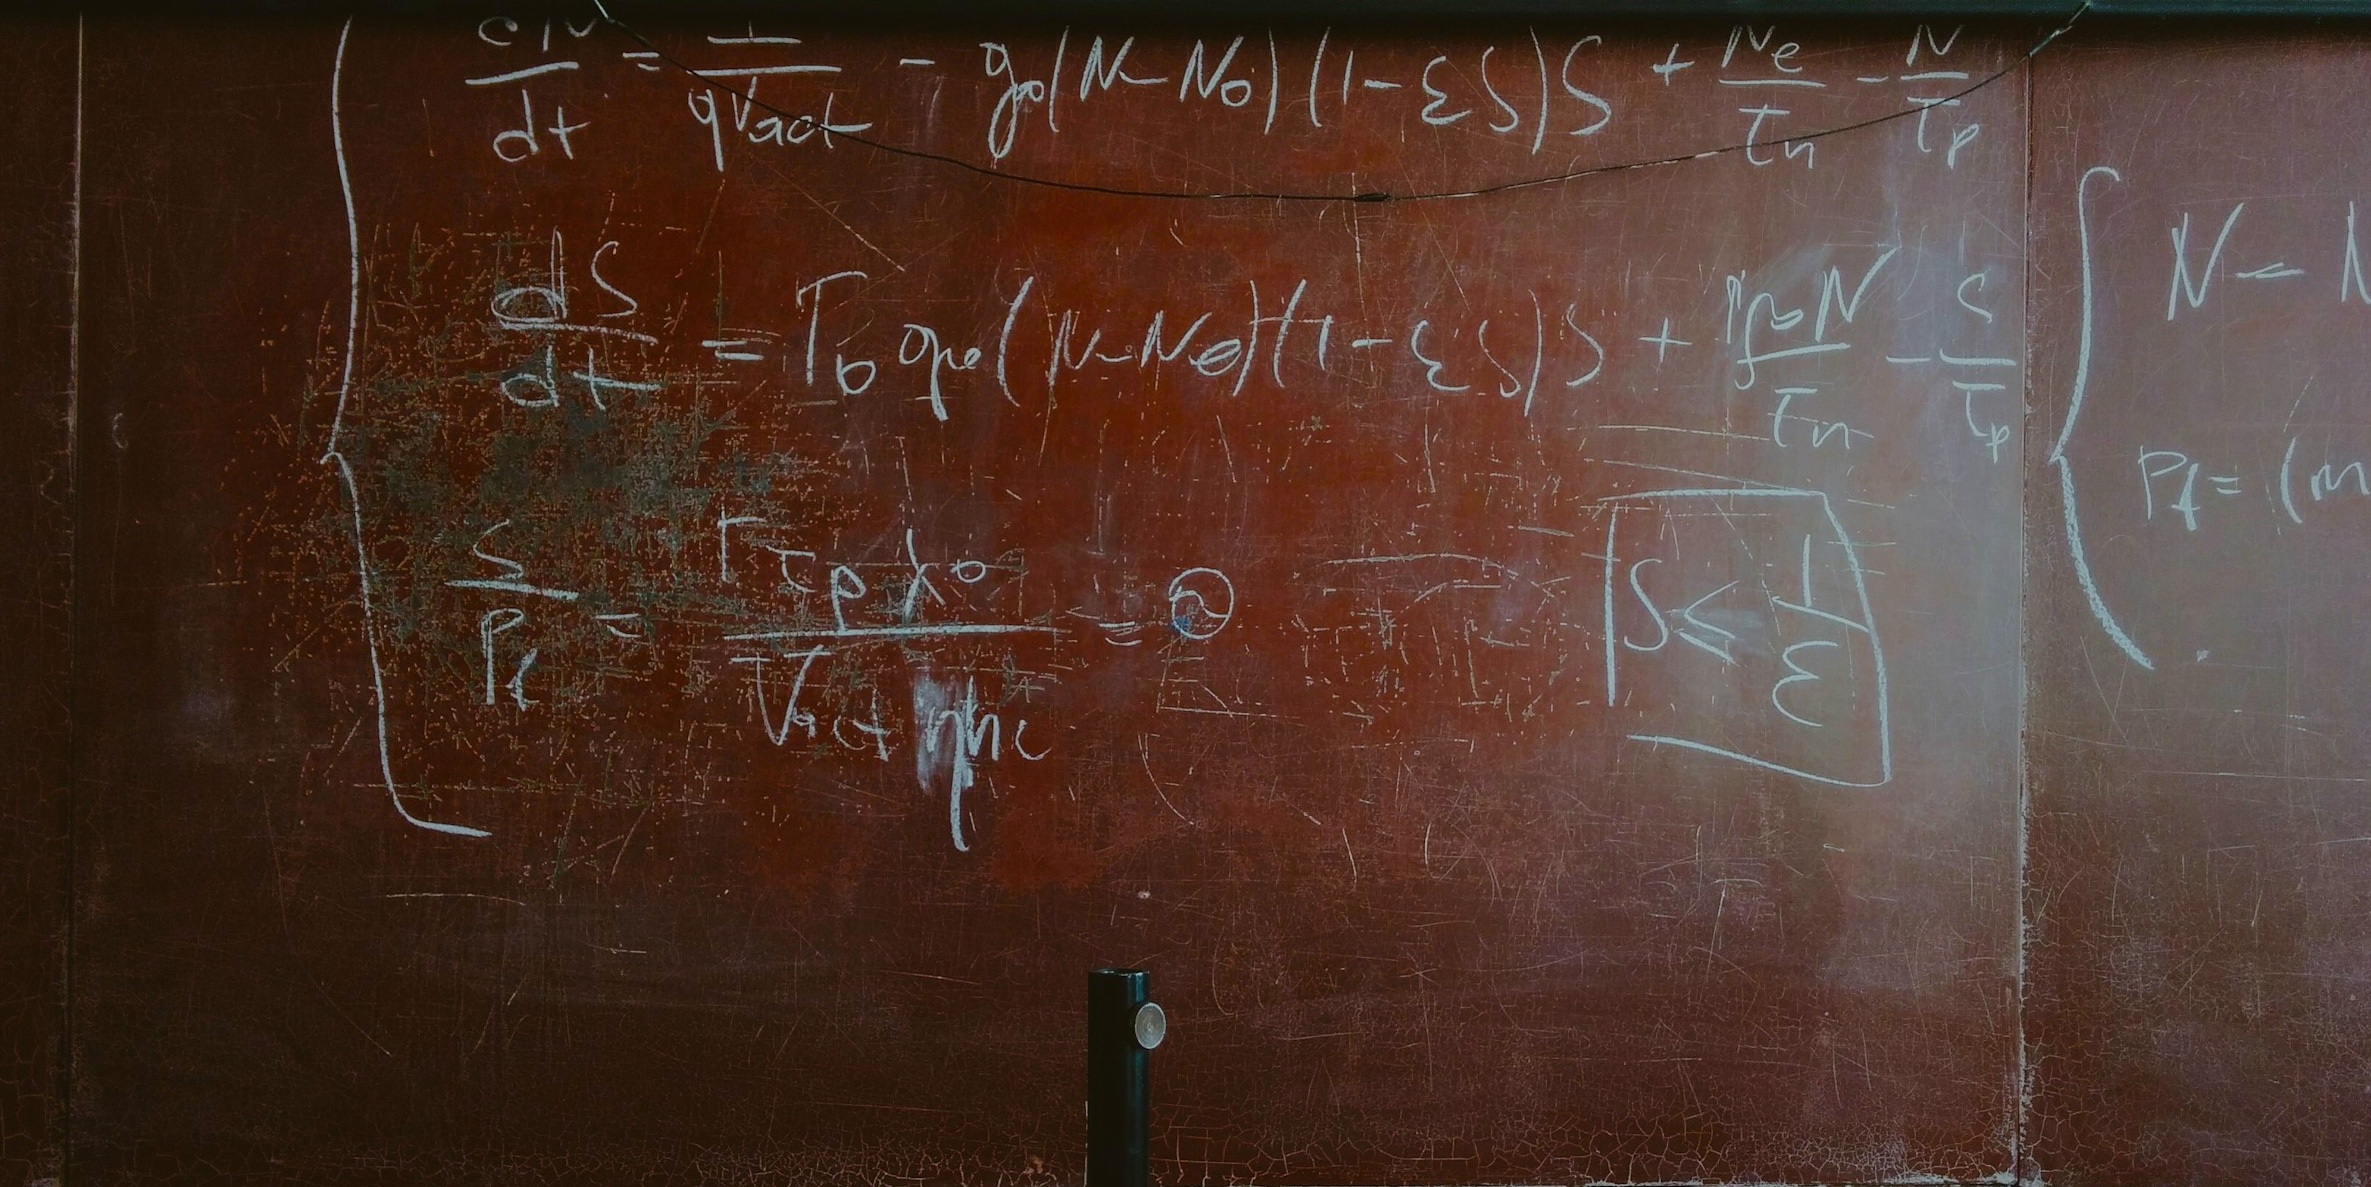 dN/dt = I/qVact - g₀(N-N₀)(1-εS)S + Ne/τn - N/τp
dS/dt = Γ₀ g₀(N-N₀)(1-εS)S + Γβ₀N/τn - S/τp
S/Pf = Γτpλ₀/Vactηhc = ϑ
S ≤ 1/ε
N = N
Pf = (m